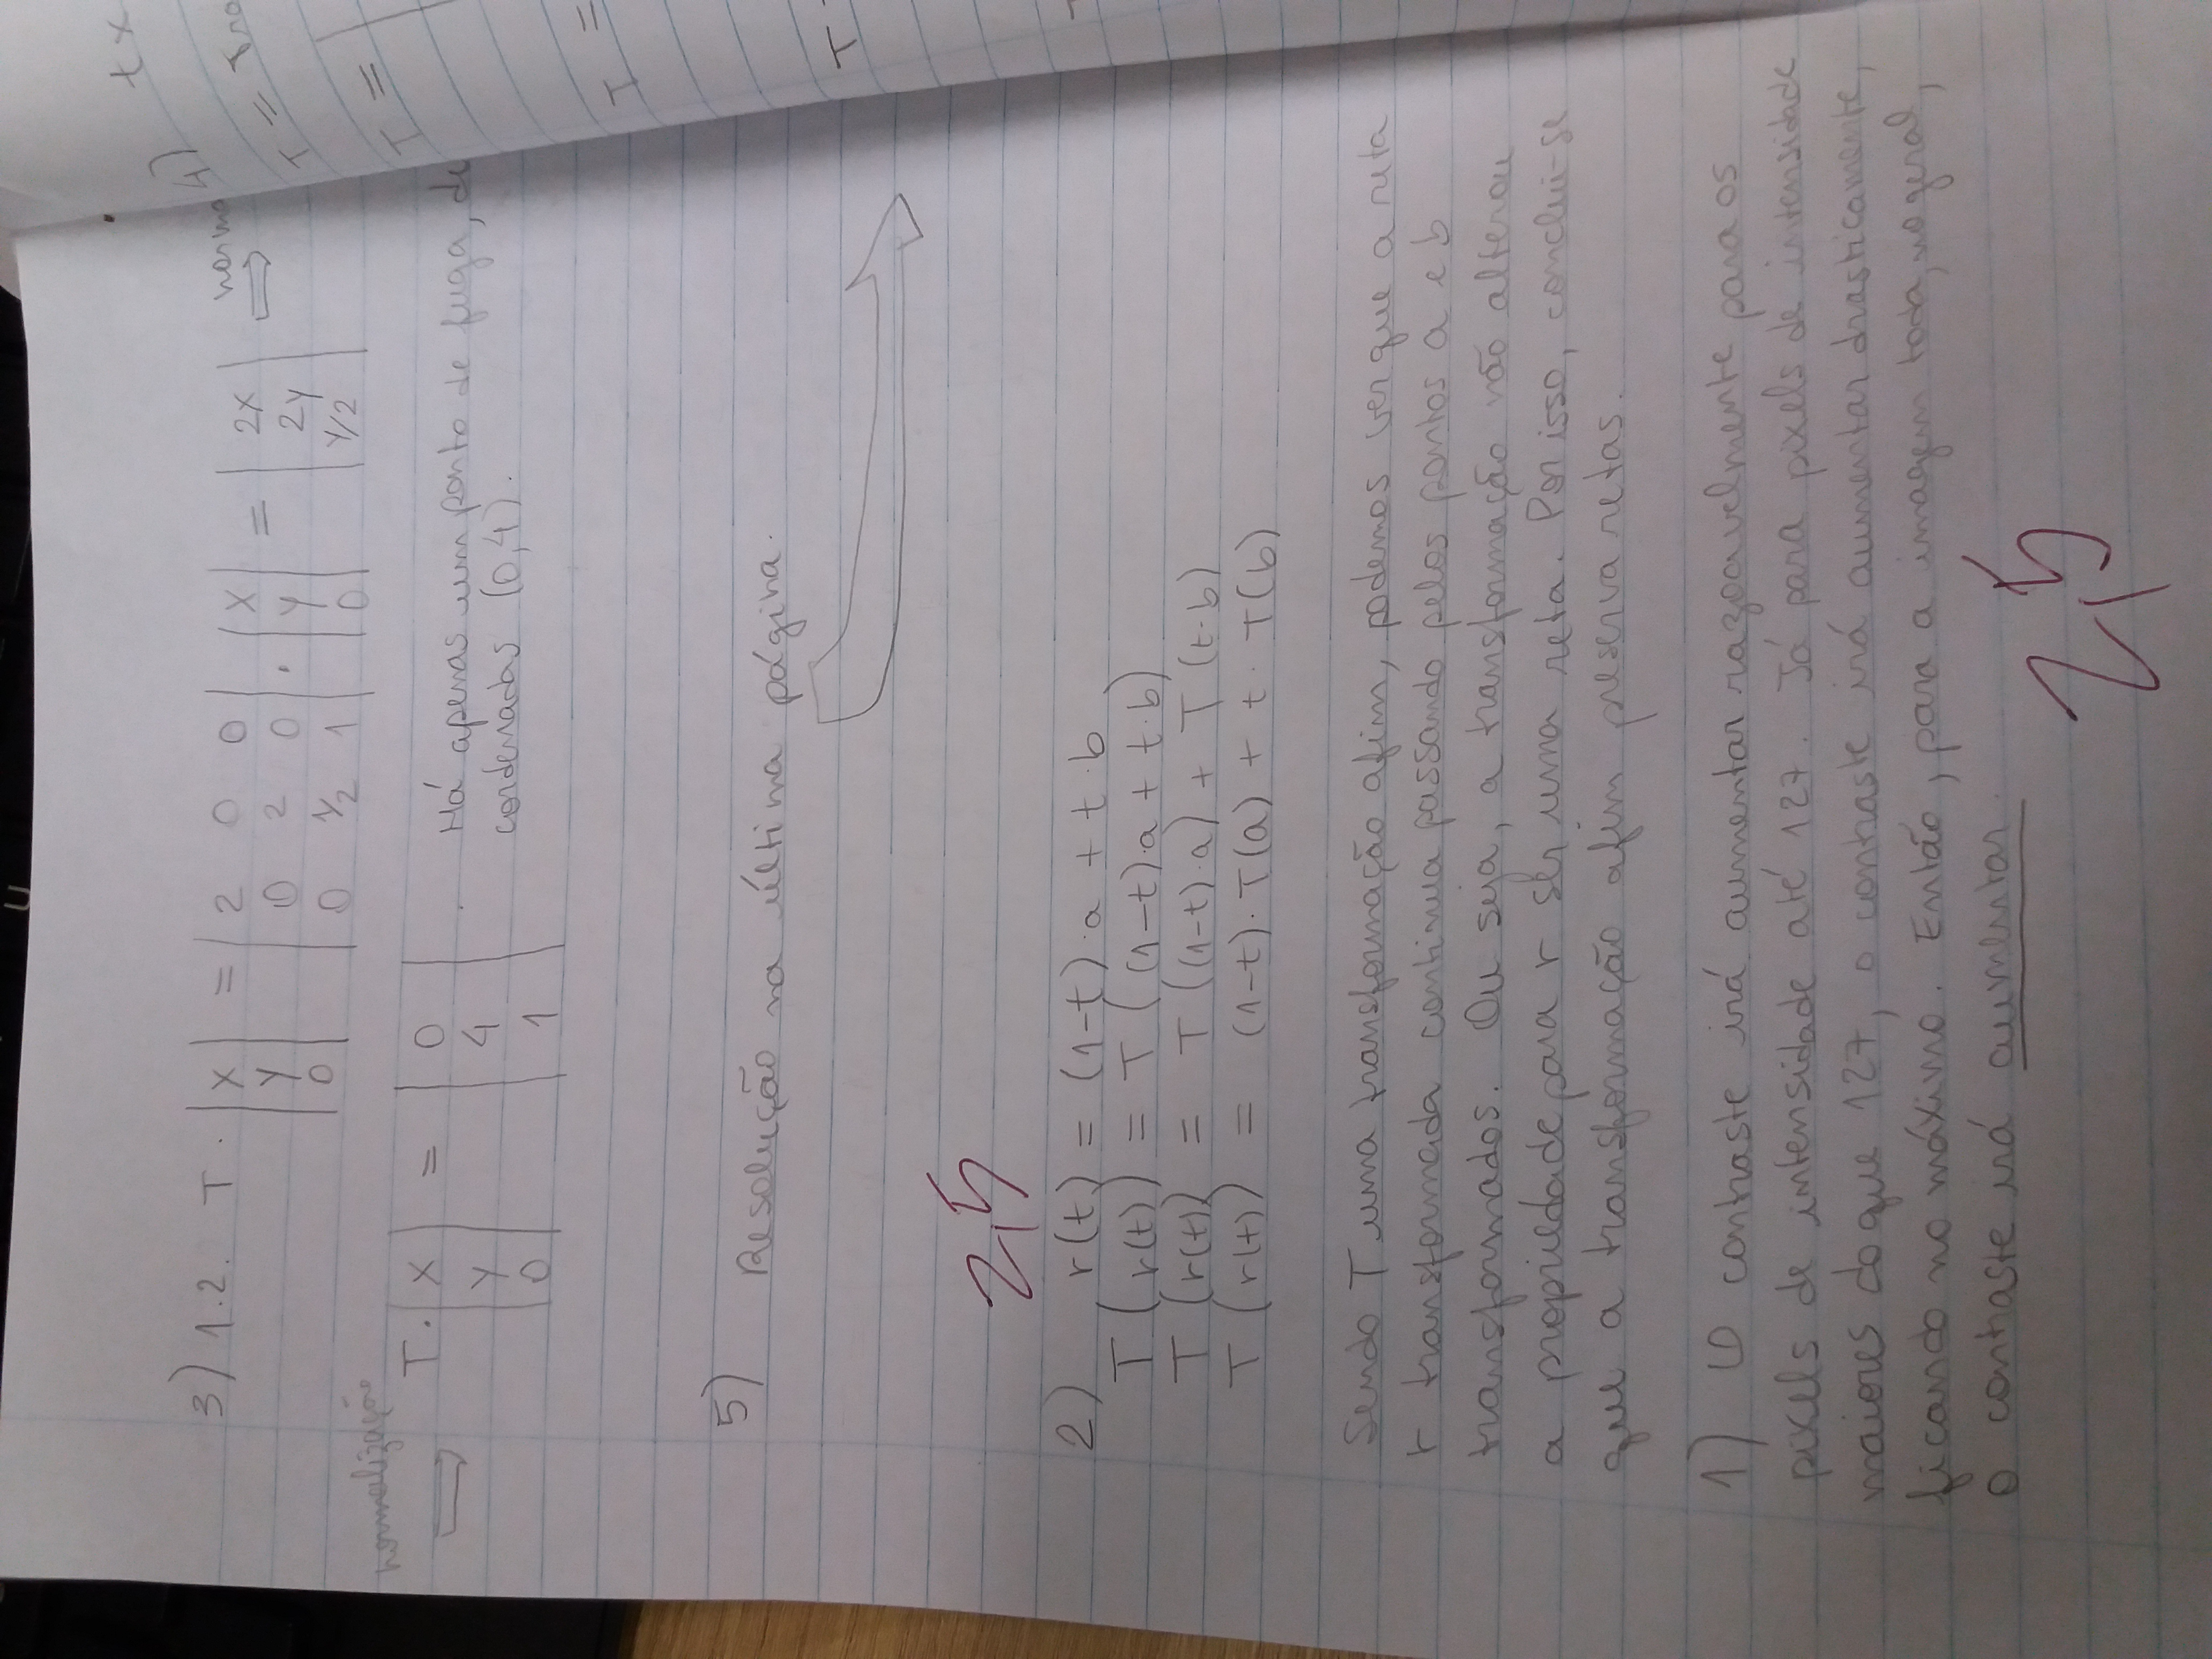 3) 1.2. T · | X | = | 2 0 0 | · | X | = | 2X | norma ⟹
| Y | | 0 2 0 | | Y | | 2Y |
| 0 | | 0 1/2 1 | | 0 | | Y/2 |
normalização ⟹ T. | X | = | 0 | . Há apenas um ponto de fuga, de
| Y | | 4 | cordenadas (0,4).
| 0 | | 1 |
5) Resolução na última página.
2,5
2) r(t) = (1-t)·a + t·b
T (r(t)) = T ((1-t)·a + t·b)
T (r(t)) = T ((1-t)·a) + T (t·b)
T (r(t)) = (1-t)· T(a) + t · T(b)
Sendo T uma transformação afim, podemos ver que a reta
r transformada continua passando pelos pontos a e b
transformados. Ou seja, a transformação não alterou
a propriedade para r ser uma reta. Por isso, conclui-se
que a transformação afim preserva retas.
1) O contraste irá aumentar razoavelmente para os
pixels de intensidade até 127. Já para pixels de intensidade
maiores do que 127, o contraste irá aumentar drasticamente,
ficando no máximo. Então, para a imagem toda, no geral,
o contraste irá aumentar.
2,5
t x
4)
T =
T =
T =
T